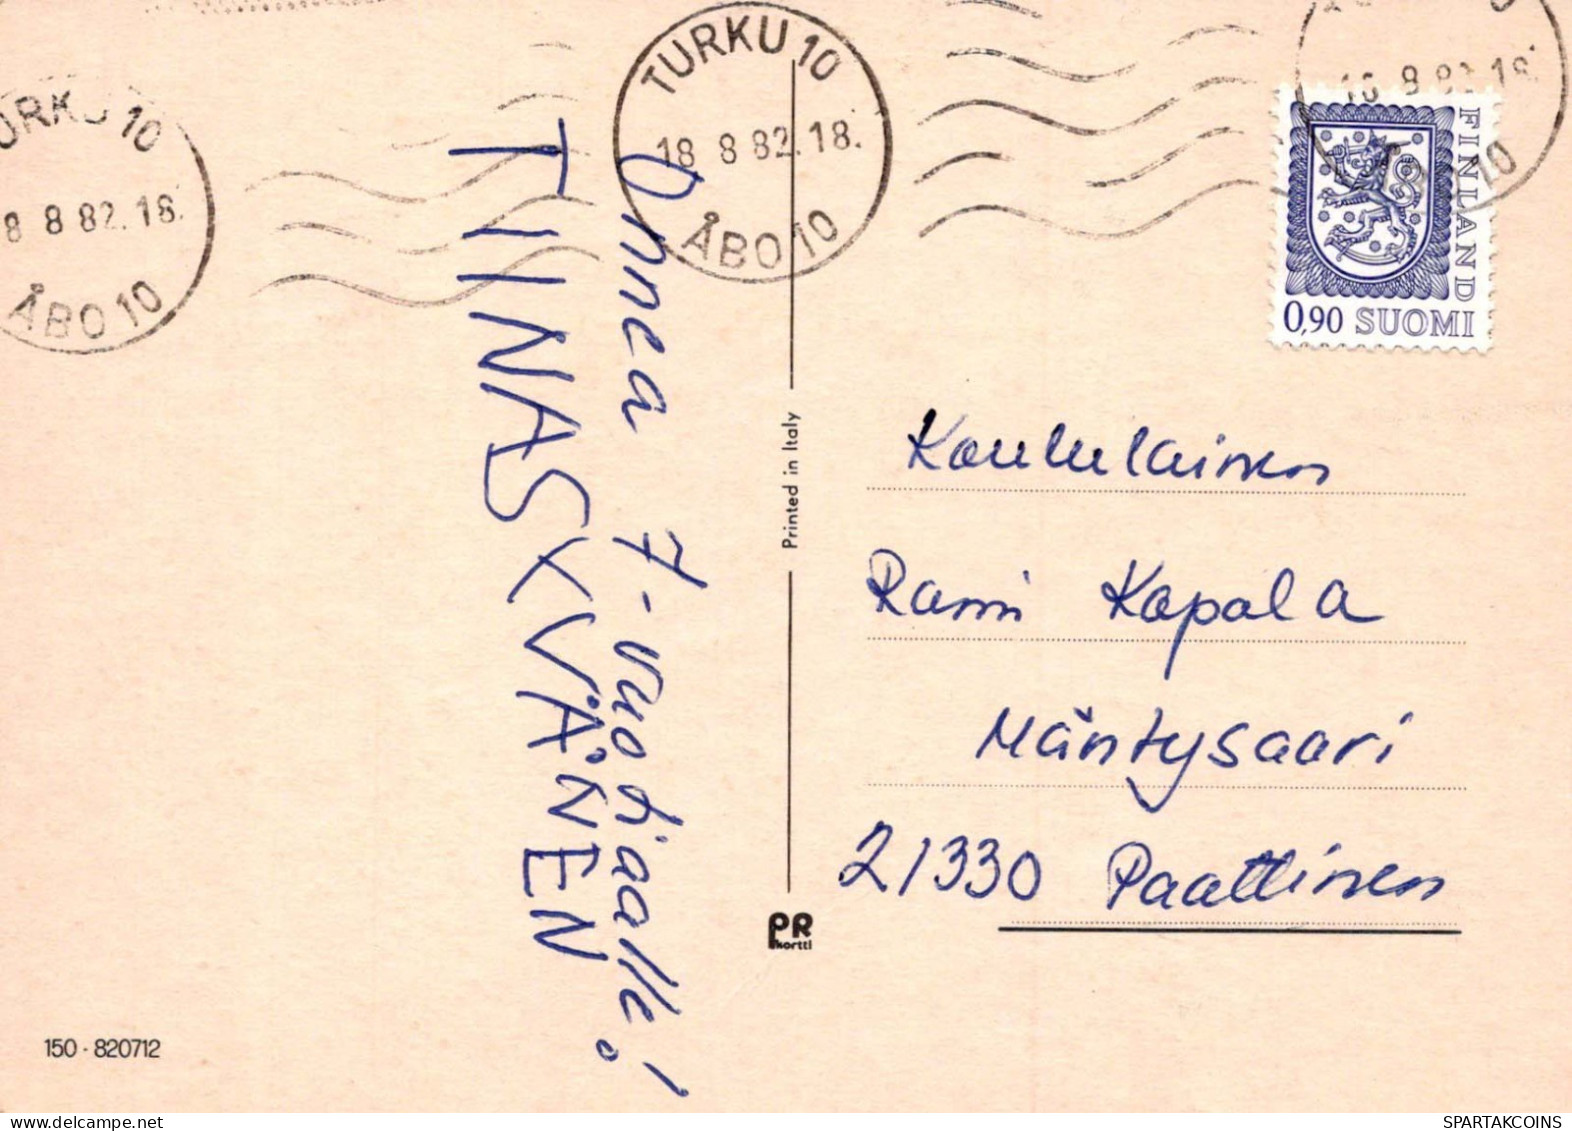 TURKU 10
18 8 82.18.
ÅBO 10
URKU 10
8 8 82.18.
ÅBO 10
8 82.18.
10
FINLAND
0,90 SUOMI
Onnea 7-vuotiaalle!
TIINA SYVÄNEN
Printed in Italy
Koululainen
Rami Kapala
Mäntysaari
21330 Paattinen
PR
kortti
150 - 820712
SPARTAKCOINS
www.delcampe.net